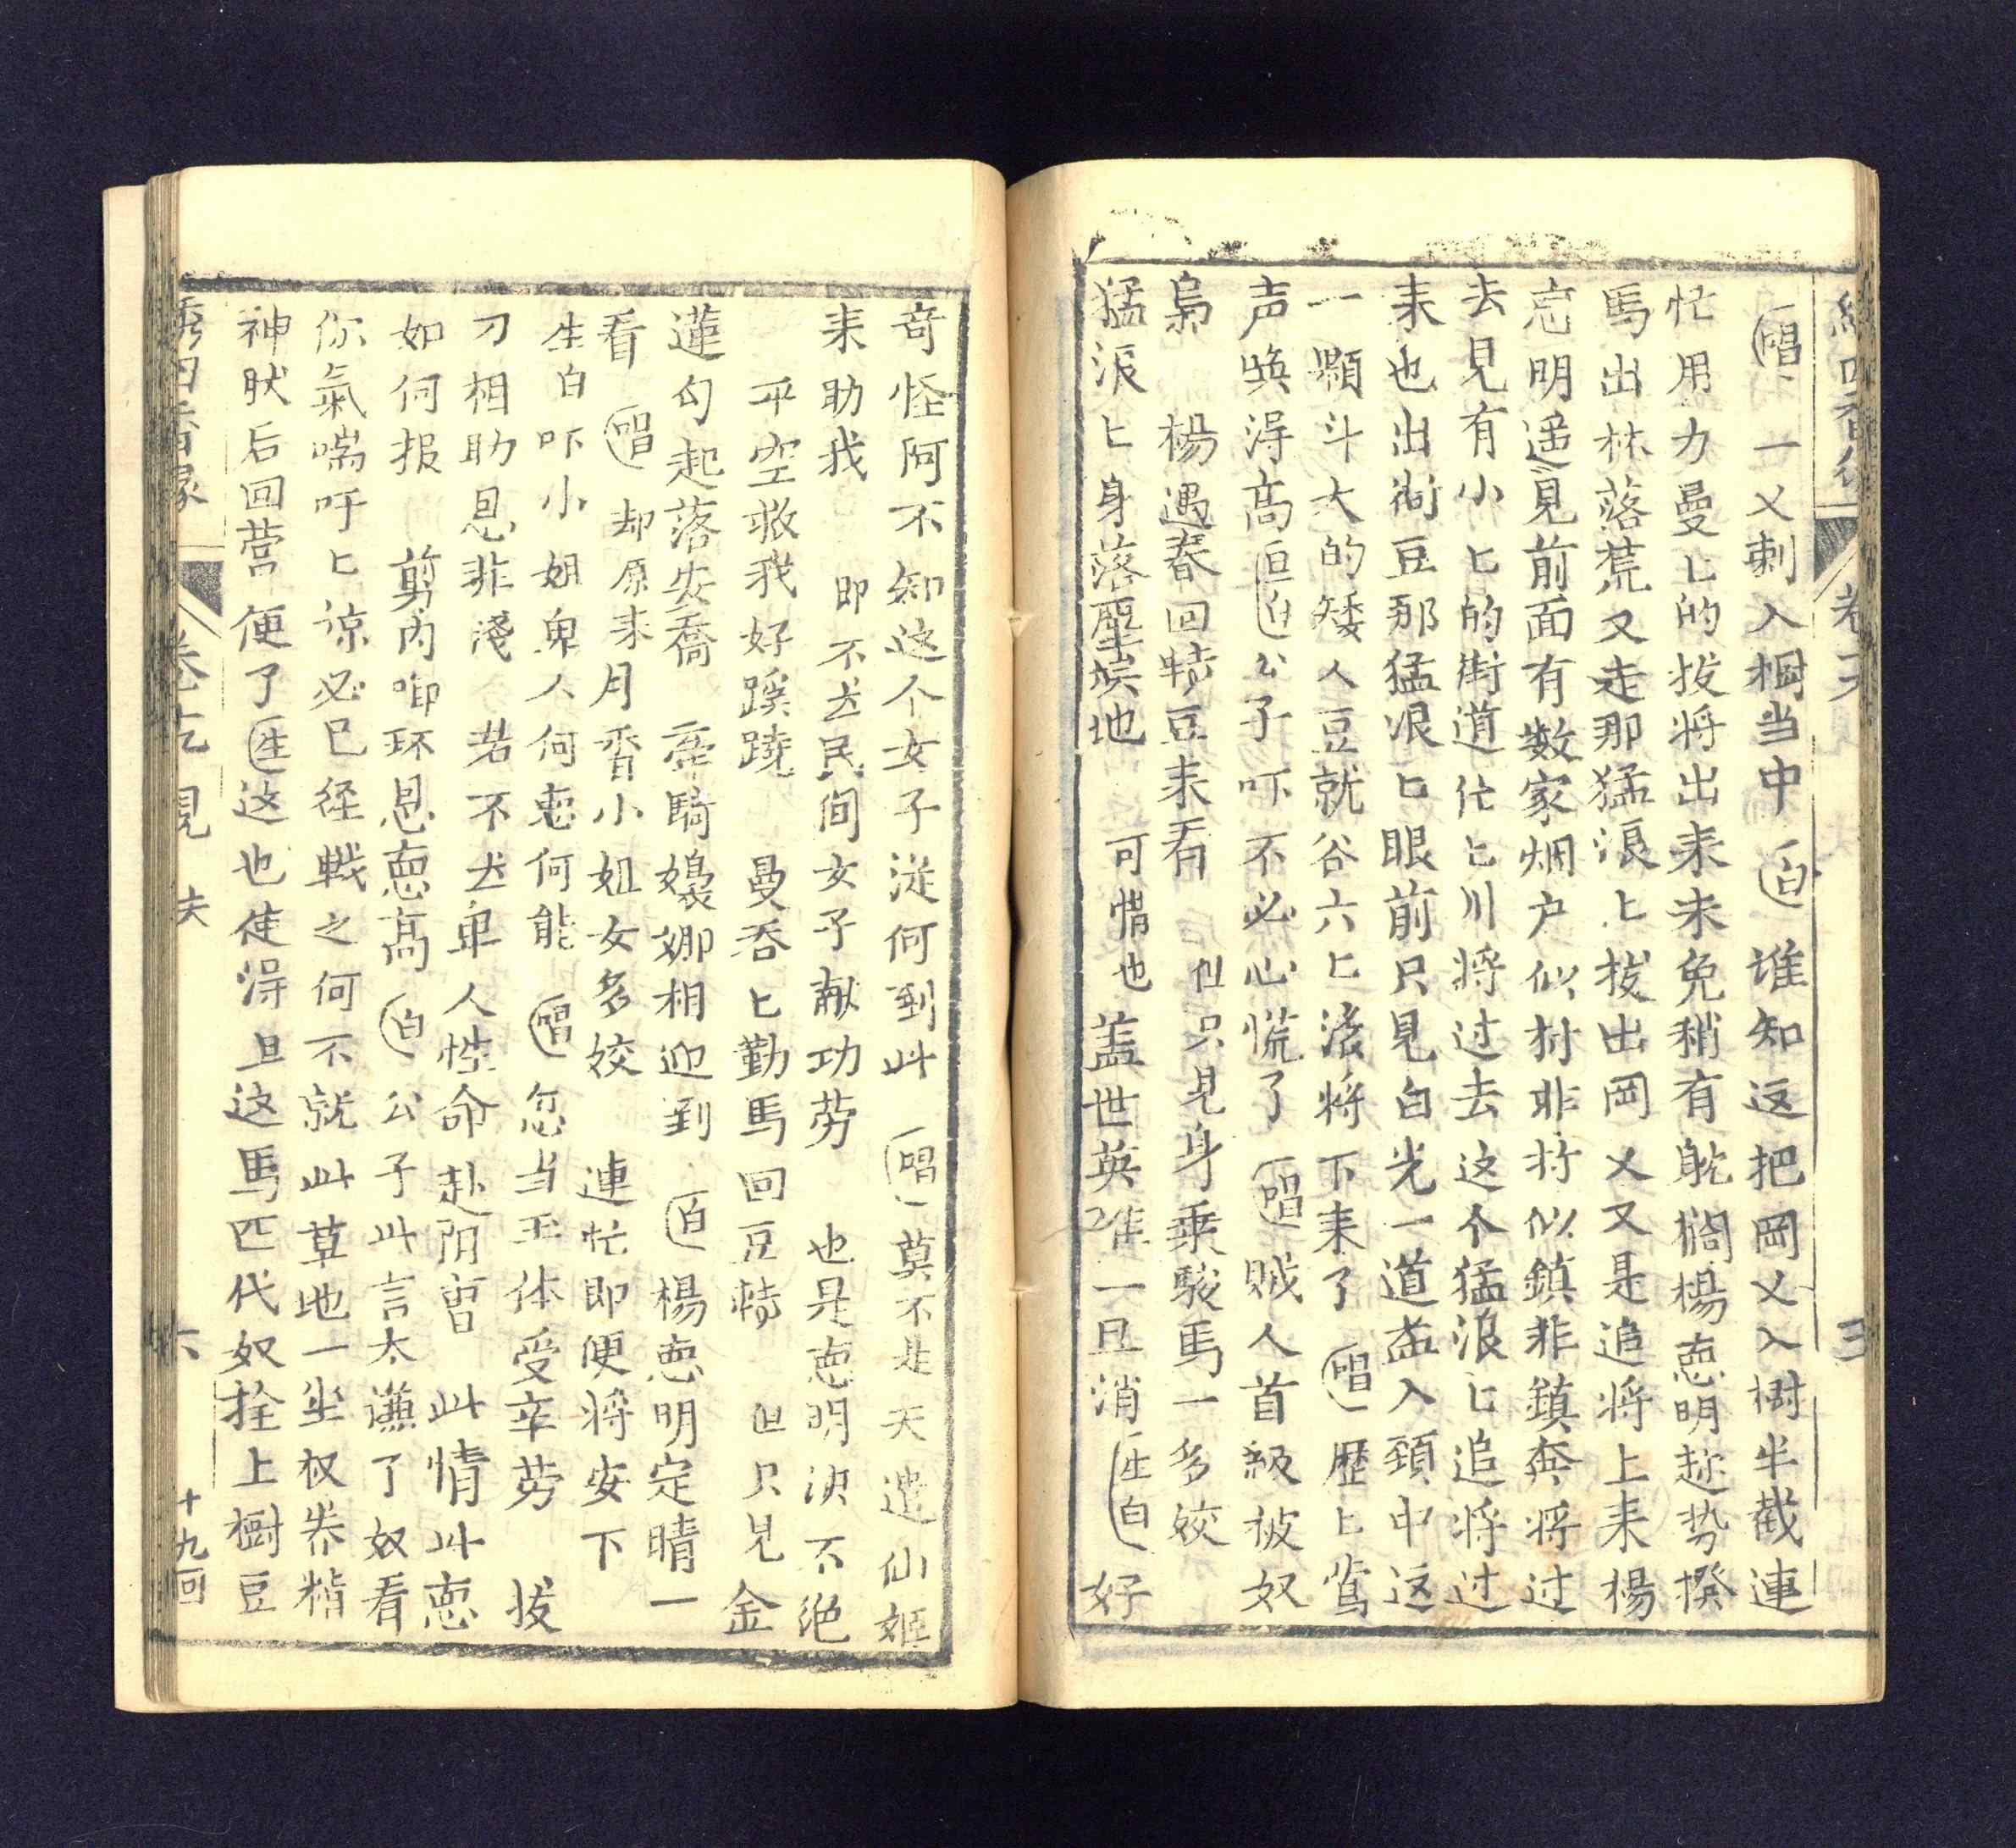 唱 一乂刺入樹当中 白 谁知这把岡乂入樹半截連
忙用力曼匕的拔将出来未免稍有躭搁楊悳明趂势撥
馬出林落荒又走那猛浪匕拔出岡乂又是追将上来楊
悳明遥見前面有数家烟户似村非村似鎮非鎮奔将过
去見有小匕的街道忙匕川将过去这个猛浪匕追将过
来也出街豆那猛浪匕眼前只見白光一道盖入頚中这
一顆斗大的矮人豆就谷六匕滚将下来了 唱 歷匕鶯
声唤淂高 旦白 公子吓不必心慌了 唱 贼人首級被奴
梟 楊遇春回轉豆来看 但只見身乗駿馬一多姣
猛浪匕身落塵埃地 可惜也 盖世英雄一旦消 生白 好
奇怪阿不知这个女子泟何到此 唱 莫不是天遣仙姬
来助我 即不止民间女子献功劳 也是悳明决不绝
平空救我好蹊蹺 曼吞匕勤馬回豆轉 但只見金
蓮勾起落安喬 乖騎嬝娜相迎到 白 楊悳明定睛一
看 唱 却原来月香小姐女多姣 連忙即便将安下
生白吓小姐卑人何悳何能 唱 忽当玉体受辛劳 拔
刀相助恩非淺 若不止卑人性命赴阴曹 此情此悳
如何报 剪内啣环恩悳高 白 公子此言太谦了奴看
你氣喘吁匕谅必已径戰之何不就此草地一坐权养精
神肰后回营便了 生 这也使淂且这馬匹代奴拴上樹豆